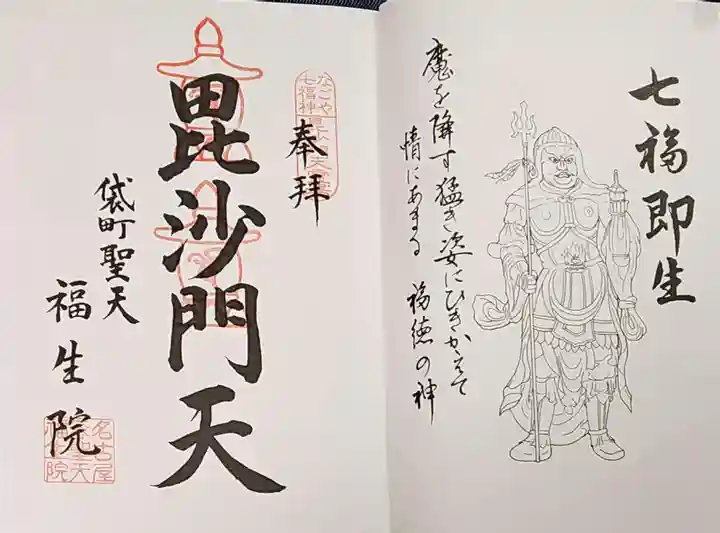 七福即生
魔を降す猛き姿にひきかへて
情にあまる 福徳の神
奉拝
なごや
七福神
毘沙門天
袋町聖天
福生院
名古屋
聖天
院